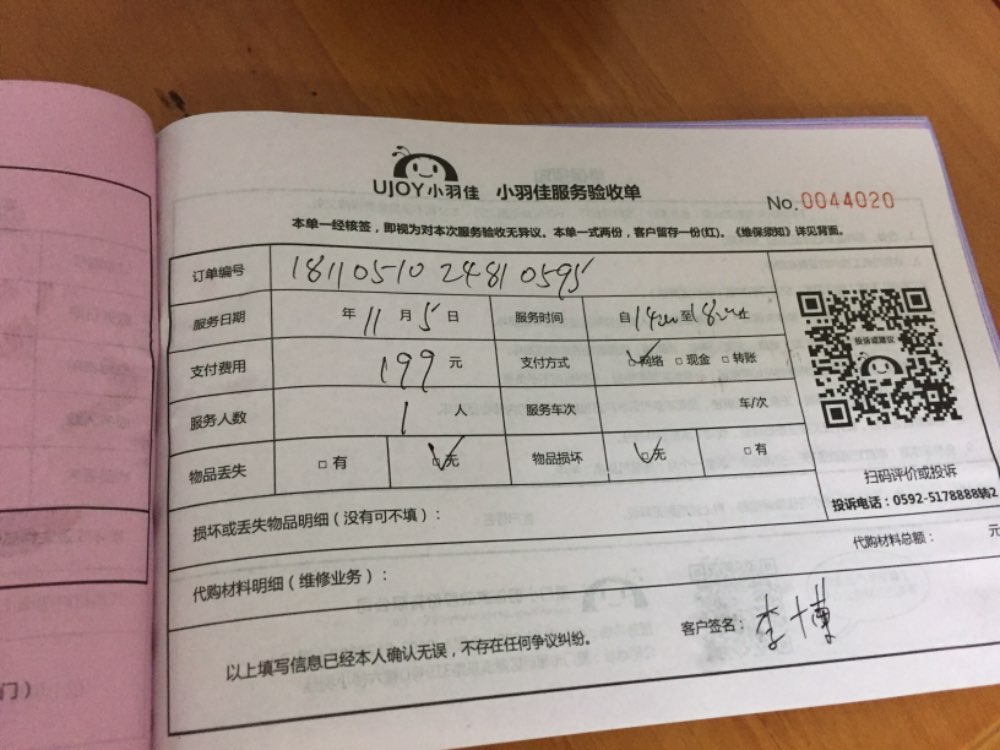 UJOY小羽佳 小羽佳服务验收单
No.0044020
本单一经核签，即视为对本次服务验收无异议。本单一式两份，客户留存一份(红)。《维保须知》详见背面。
订单编号 18110510 2481 0595
服务日期 年 11 月 5 日 服务时间 自 1400 至 1800 止
支付费用 199 元 支付方式 ☑网络 □现金 □转账
服务人数 1 人 服务车次 车/次
物品丢失 □有 ☑无 物品损坏 ☑无 □有
投诉或建议
扫码评价或投诉
投诉电话：0592-5178888转2
损坏或丢失物品明细（没有可不填）：
代购材料总额： 元
代购材料明细（维修业务）：
客户签名：李博
以上填写信息已经本人确认无误，不存在任何争议纠纷。
门）